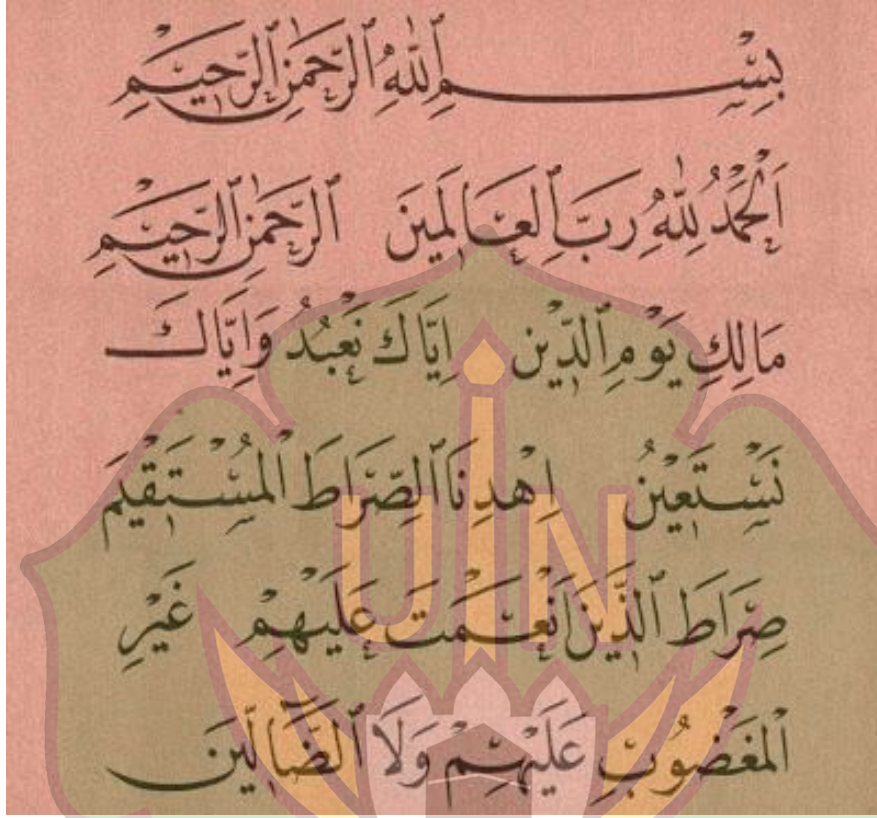 بِسْمِ ٱللّٰهِ ٱلرَّحْمٰنِ ٱلرَّحِيْمِ
اَلْحَمْدُ لِلّٰهِ رَبِّ ٱلْعَالَمِينَ ٱلرَّحْمٰنِ ٱلرَّحِيْمِ
مَالِكِ يَوْمِ ٱلدِّيْنِ اِيَّاكَ نَعْبُدُ وَاِيَّاكَ
نَسْتَعِيْنُ اِهْدِنَا ٱلصِّرَاطَ ٱلْمُسْتَقِيْمَ
صِرَاطَ ٱلَّذِيْنَ اَنْعَمْتَ عَلَيْهِمْ غَيْرِ
ٱلْمَغْضُوبِ عَلَيْهِمْ وَلَا ٱلضَّالِّينَ
UIN